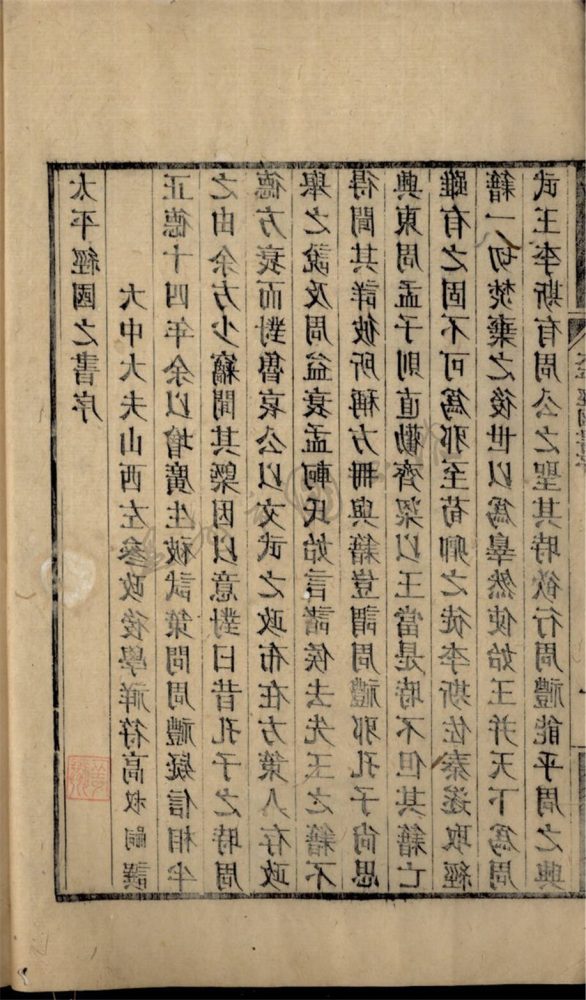 太平經國之書序
大中大夫山西左叅政後學祥符高叔嗣譔
正德十四年余以增廣生被試策問周禮疑信相半
之由余方少竊聞其槩因以意對曰昔孔子之時周
德方衰而對魯哀公以文武之政布在方策人存政
舉之說及周益衰孟軻氏始言諸侯去先王之籍不
得聞其詳彼所稱方冊與籍豈謂周禮邪孔子尚思
興東周孟子則直勸齊梁以王當是時不但其籍亡
雖有之固不可為邪至荀卿之徒李斯佐秦遂取經
籍一切焚棄之後世以為辠然使始王并天下為周
武王李斯有周公之聖其時欲行周禮能乎周之典